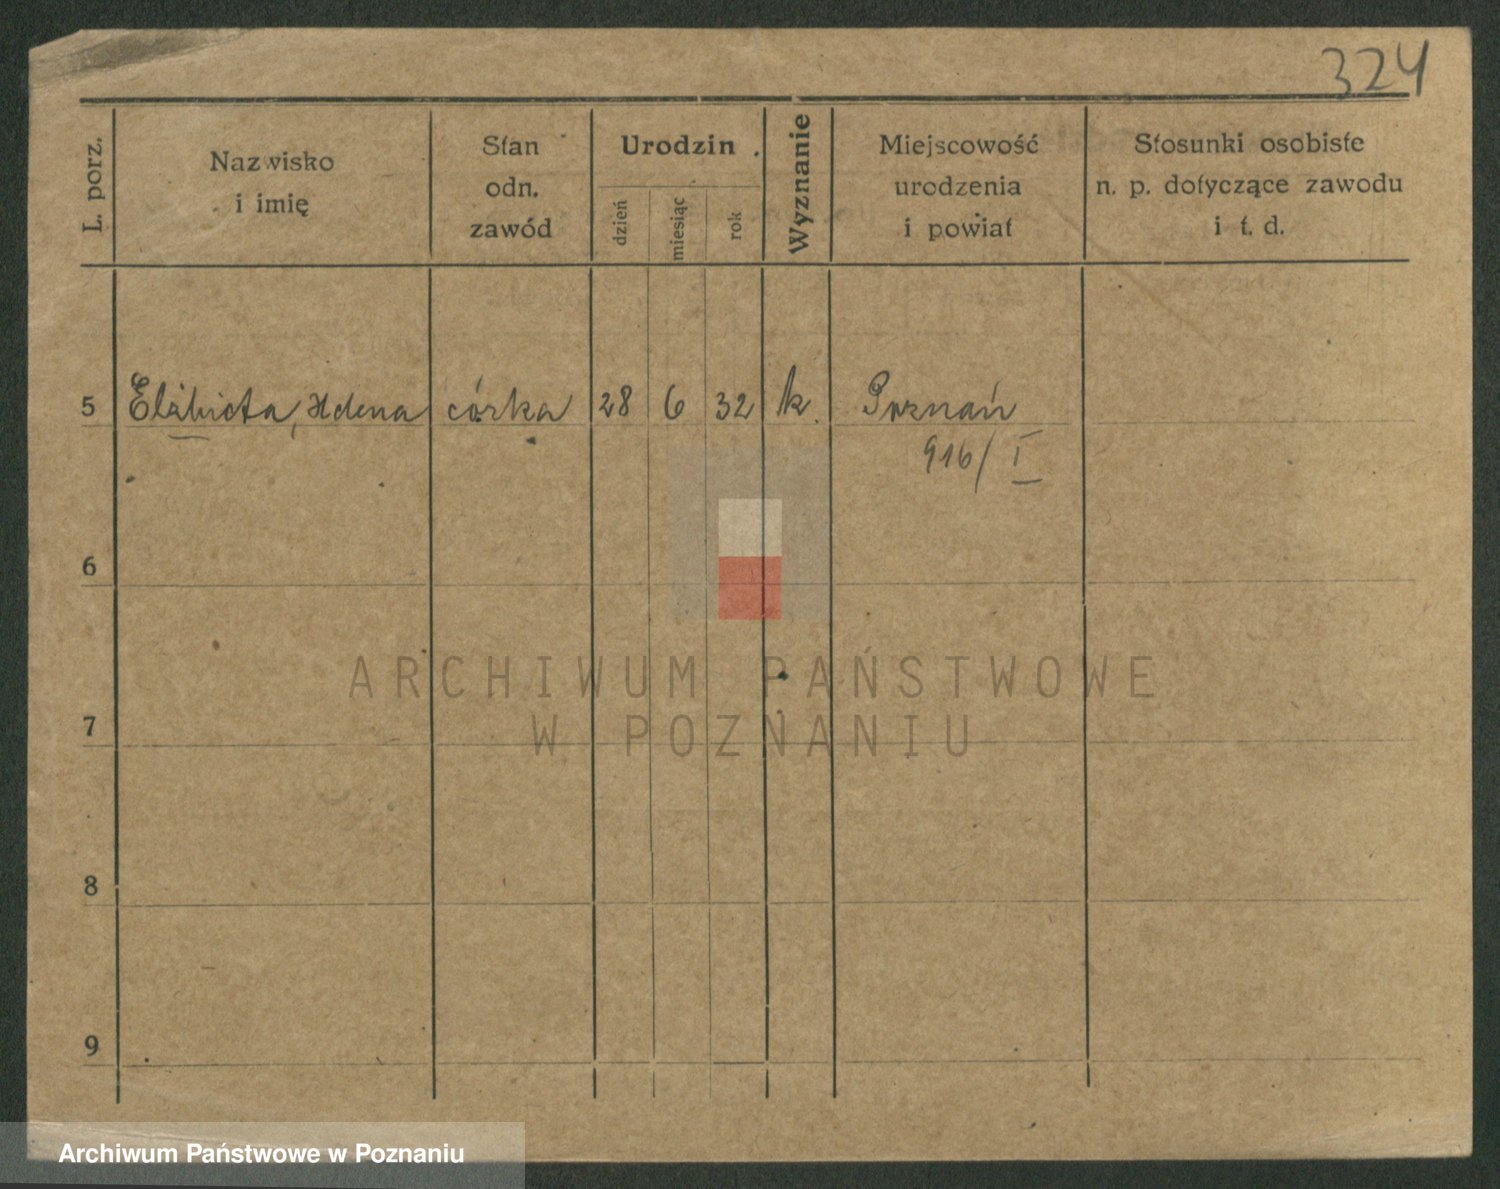 324
L. porz.
Nazwisko
i imię
Stan
odn.
zawód
Urodzin
dzień
miesiąc
rok
Wyznanie
Miejscowość
urodzenia
i powiat
Stosunki osobiste
n. p. dotyczące zawodu
i t. d.
5 Elżbieta, Helena córka 28 6 32 k. Poznań
916/I
6
7
8
9
ARCHIWUM PAŃSTWOWE
W POZNANIU
Archiwum Państwowe w Poznaniu